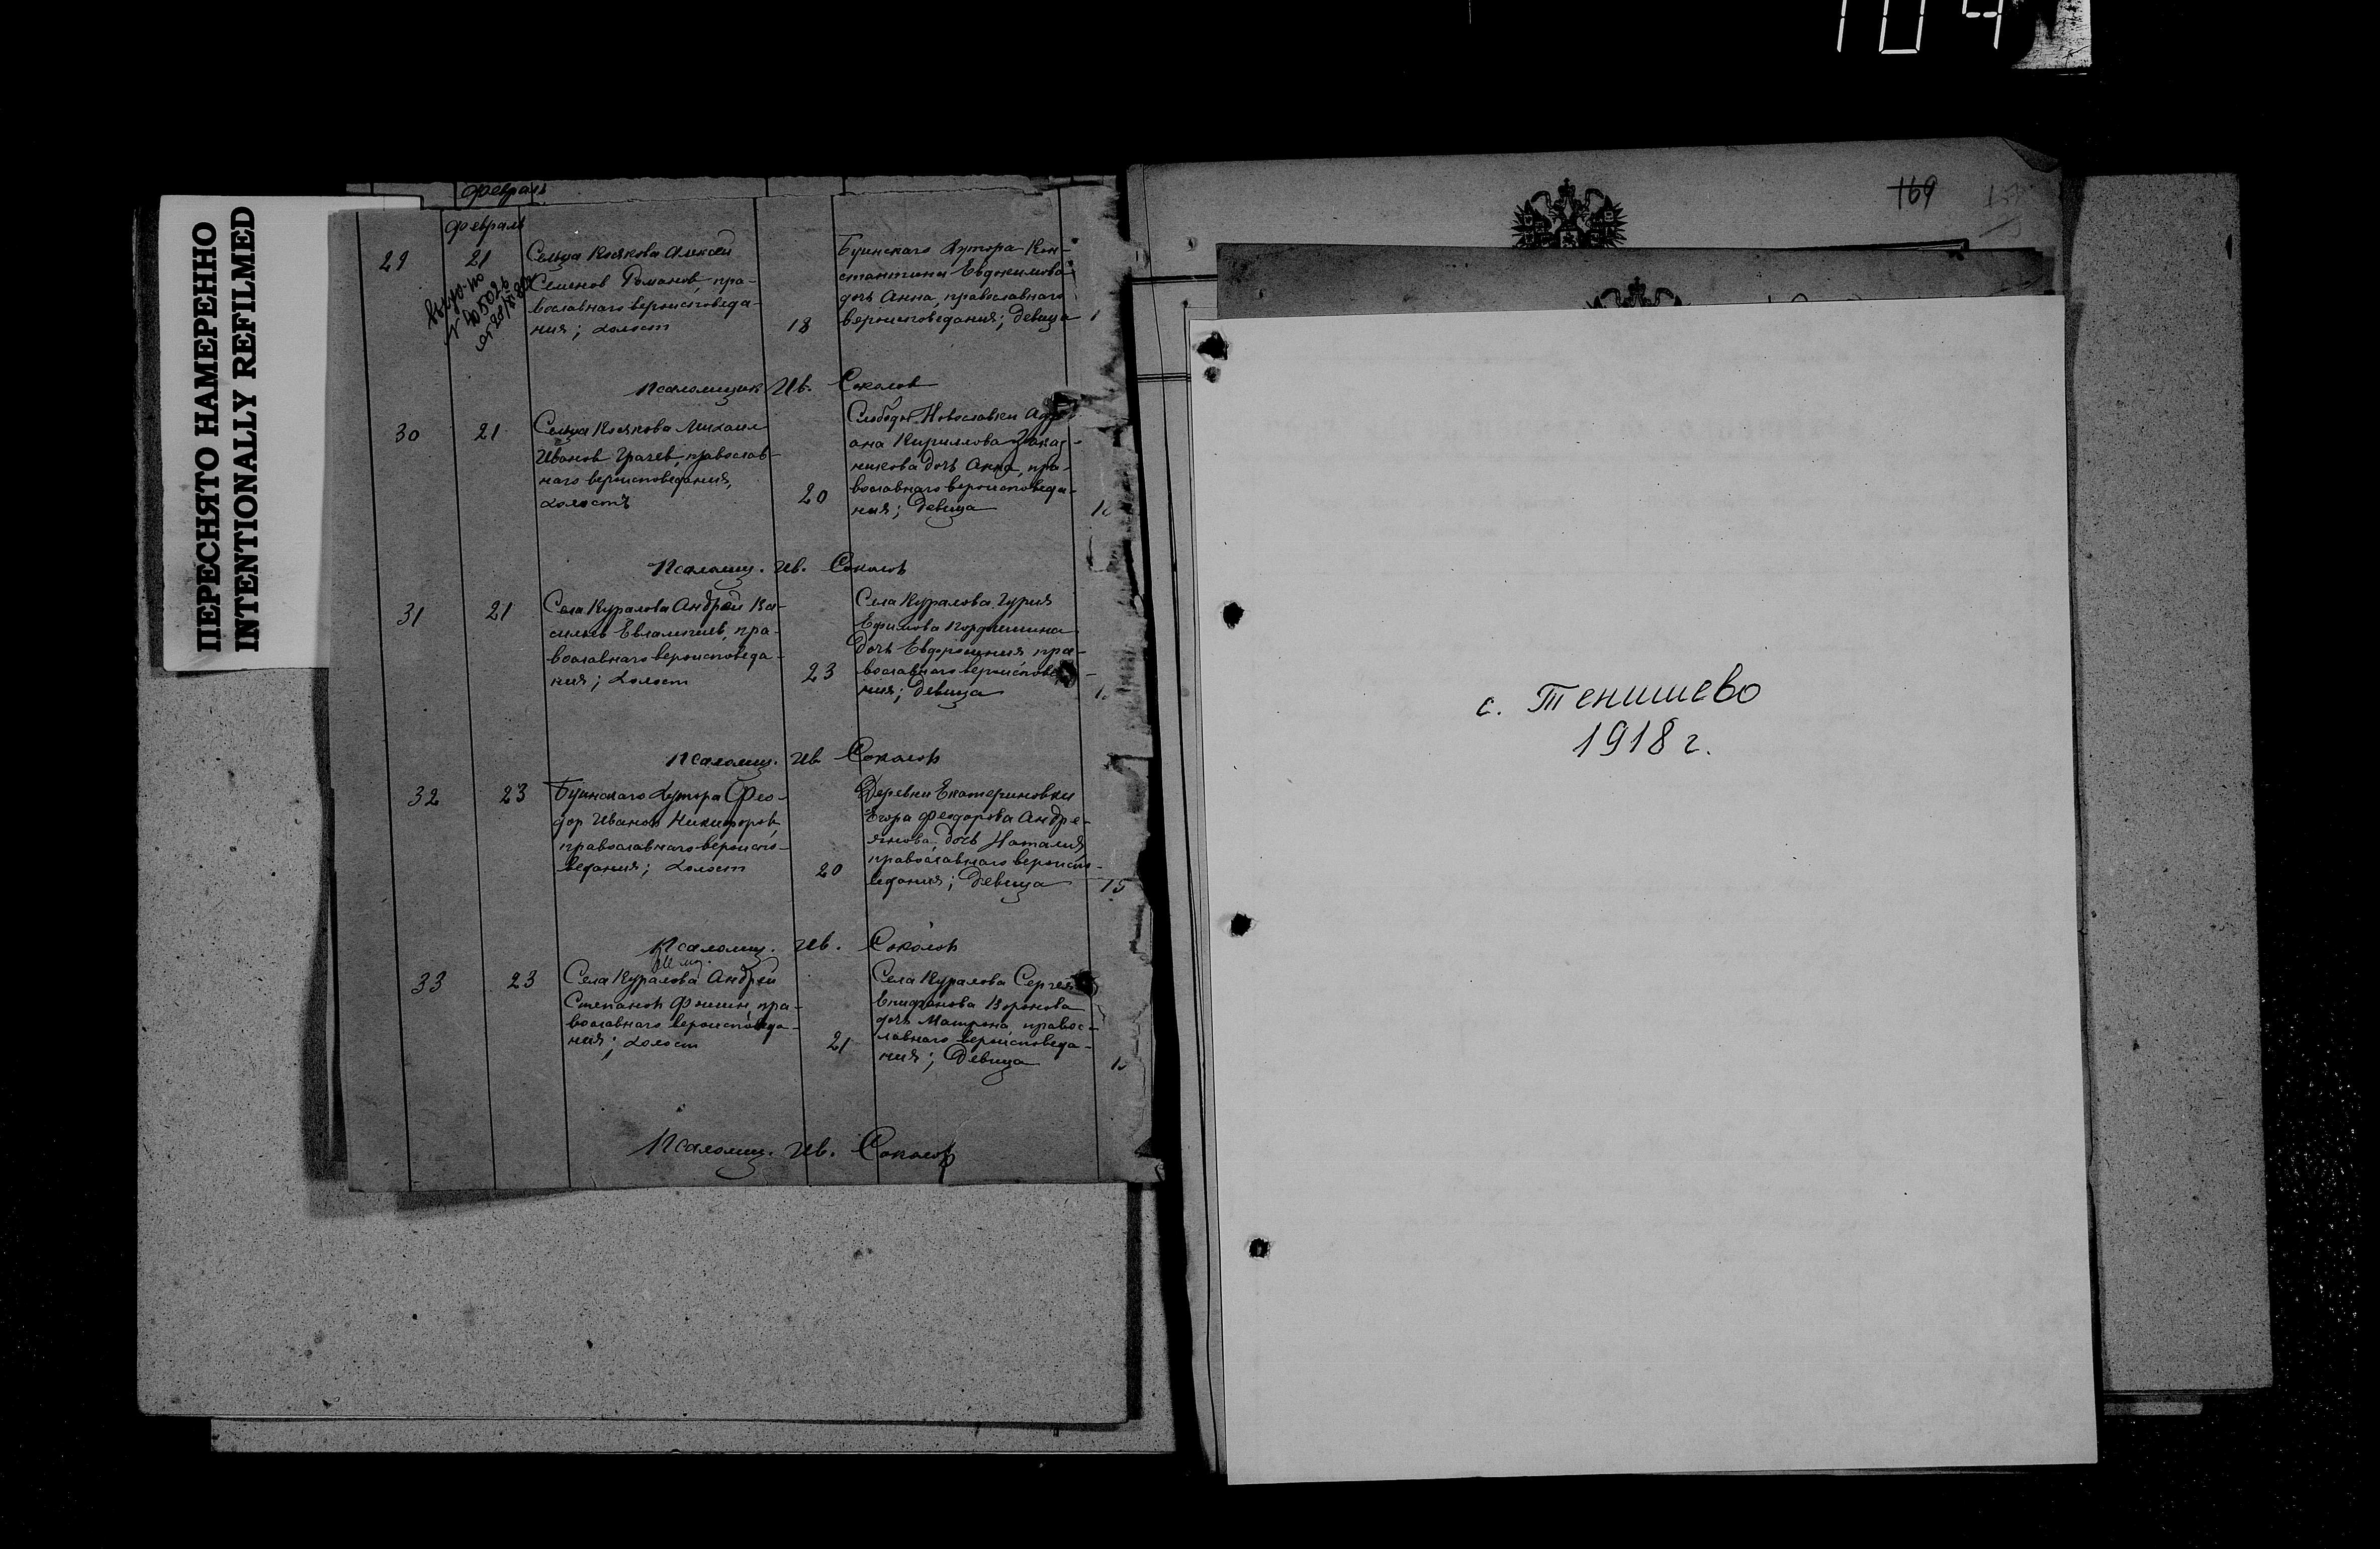 104
ПЕРЕСНЯТО НАМЕРЕННО
INTENTIONALLY REFILMED
февраль
февраль
29
21
Сельца Косякова Алексей
Семенов Романов, пра-
вославнаго вероисповеда-
ния; холост
18
Буинскаго Хутора Кон-
стантина Евдокимова
дочь Анна, православнаго
вероисповедания; девица
Псаломщик Ив. Соколов
30
21
Сельца Косякова Михаил
Иванов Грачев, православ-
наго вероисповедания,
холостъ
20
Слободы Новославки
ана Кириллова
никова дочь Анна, пра-
вославнаго вероисповеда-
ния; девица
Псаломщ. Ив. Соколов
31
21
Села Куралова Андрей Ва-
сильев Евлампиев, пра-
вославнаго вероисповеда-
ния; холост
23
Села Куралова Гурия
Ефимова
дочь пра-
вославнаго
ния; девица
Псаломщ. Ив. Соколов
32
23
Буинскаго Хутора Фео-
дор Иванов Никифоров,
православнаго вероиспо-
ведания; холост
20
Деревни Екатериновки
Егора Феодорова Андре-
янова, дочь Наталия,
православнаго вероиспо-
ведания; девица
15
Псаломщ. Ив. Соколов
33
23
Села Куралова Андрей
Степанов Фомин, пра-
вославнаго вероисповеда-
ния; холост
21
Села Куралова Сергея
Епифанова Воронова
дочь Матрона, правос-
лавнаго вероисповеда-
ния; девица
Псаломщ. Ив. Соколов
169
с. Тенишево
1918 г.